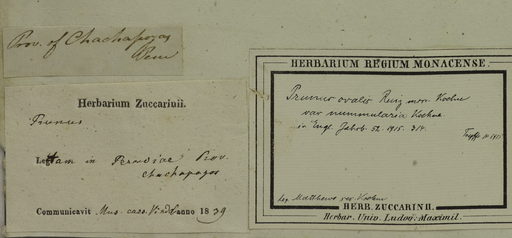 Prov. of Chachapoyas
Peru
Herbarium Zuccarinii.
Prunus
Lectam in Peruviae Prov.
Chachapoyas
Communicavit Mus. caes. Vind. anno 1839
HERBARIUM REGIUM MONACENSE.
Prunus ovalis Ruiz Koehne
var nummularia Koehne
in Engl. Jahrb. 52. 1915. 314.
1915
leg. Matthews Koehne
HERB. ZUCCARINII.
Herbar. Univ. Ludov: Maximil.